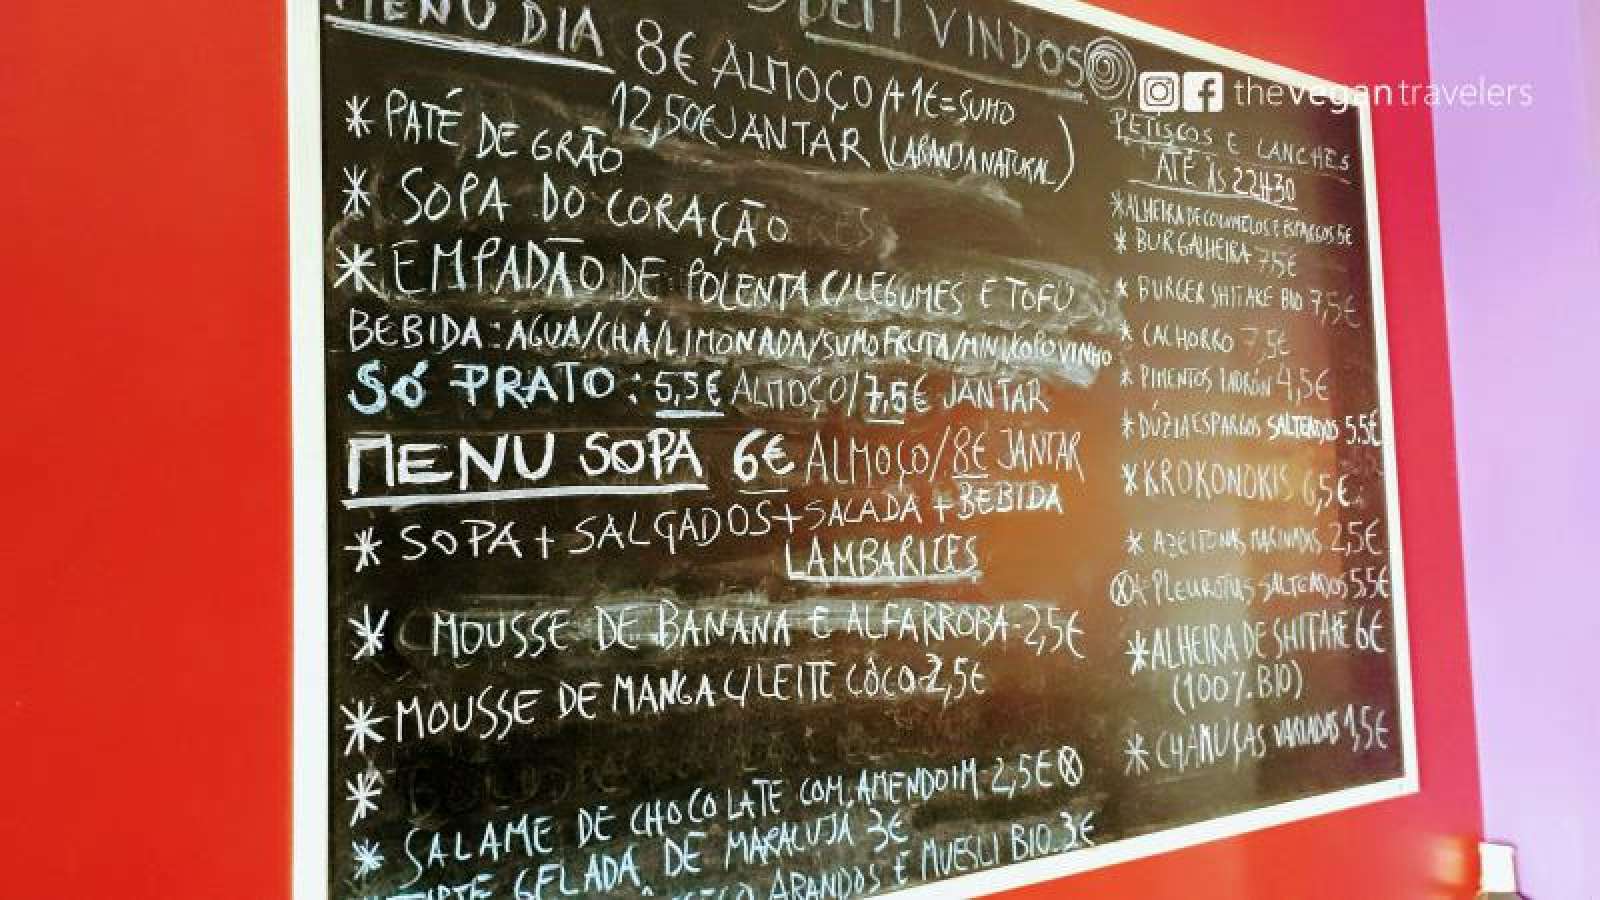 MENU DIA 8€ ALMOÇO
BEM VINDOS
12,50€ JANTAR (+1€=SUMO
LARANJA NATURAL)
* PATÉ DE GRÃO
* SOPA DO CORAÇÃO
* EMPADÃO DE POLENTA C/LEGUMES E TOFU
BEBIDA: ÁGUA/CHÁ/LIMONADA/SUMO FRUTA/MINI/COPO VINHO
SÓ PRATO: 5,5€ ALMOÇO/7,5€ JANTAR
MENU SOPA 6€ ALMOÇO/8€ JANTAR
* SOPA + SALGADOS + SALADA + BEBIDA
LAMBARICES
* MOUSSE DE BANANA E ALFARROBA-2,5€
* MOUSSE DE MANGA C/LEITE CÔCO-2,5€
*
* SALAME DE CHOCOLATE COM AMENDOIM-2,5€
TARTE GELADA DE MARACUJÁ 3€
ARANDOS E MUESLI BIO 3€
thevegantravelers
PETISCOS E LANCHES
ATÉ ÀS 22H30
* ALHEIRA DE COGUMELOS E ESPARGOS 5€
* BURGALHEIRA 7,5€
* BURGER SHITAKE BIO 7,5€
* CACHORRO 7,5€
* PIMENTOS PADRÓN 4,5€
* DÚZIA ESPARGOS SALTEADOS 5.5€
* KROKONOKIS 6,5€
* AZEITONAS MARINADAS 2,5€
PLEUROTUS SALTEADOS 5.5€
* ALHEIRA DE SHITAKE 6€
(100% BIO)
* CHAMUÇAS VARIADAS 1,5€